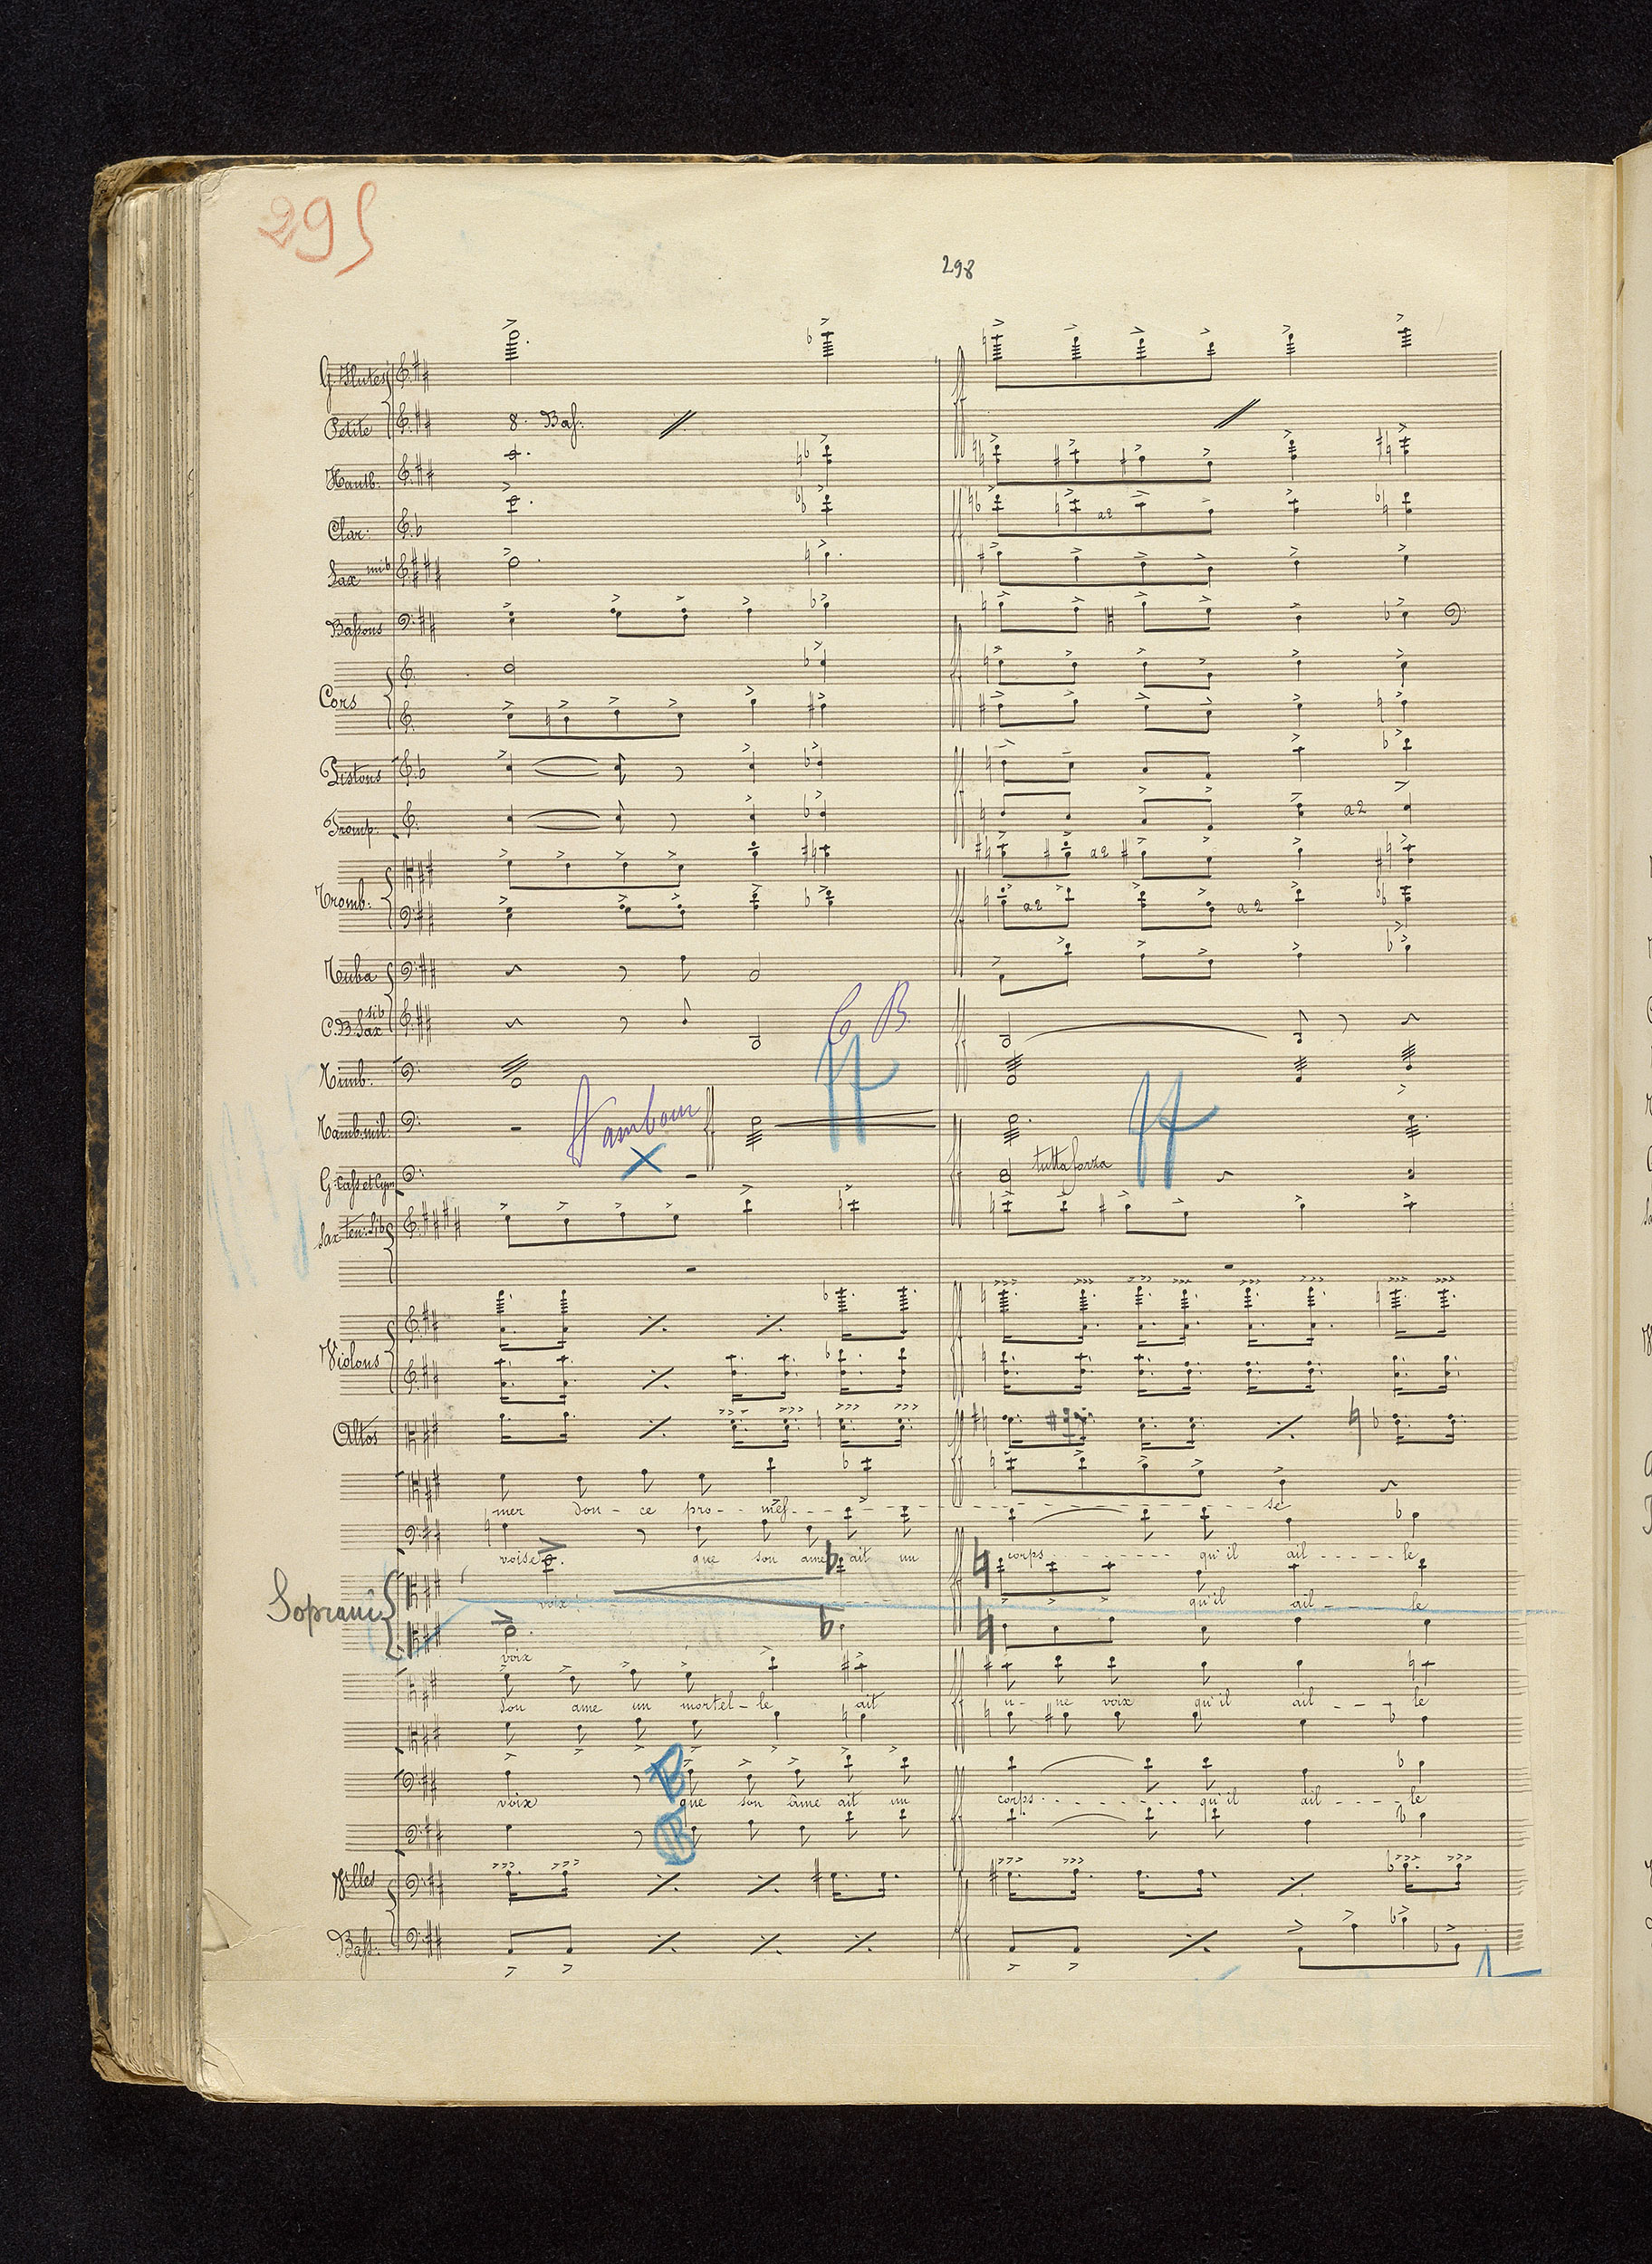 295
298
G. Flutes
Petite 8. Baſ:
Hautb.
Clar: a2
Sax mib
Baſsons
Cors
Pistons
Tromp. a2
Tromb: a2
a2 a2
Tuba
C.B. Sax sib C B.
ff
Timb.
Tamb. mil. Tambour ff ff
G. Caſs et Cym tutta forza
Sax ten: sib
Violons
Altos
mer dou - ce pro - meſ - - - se
voise que son ame ait un corps - - - - qu'il ail - - - - le
Soprani voix qu'il ail - - - le
voix
Son ame un mortel - le ait u - ne voix qu'il ail - - - le
B
voix que son âme ait un corps - - - - qu'il ail - - - - le
B
Vlles
Baſs.